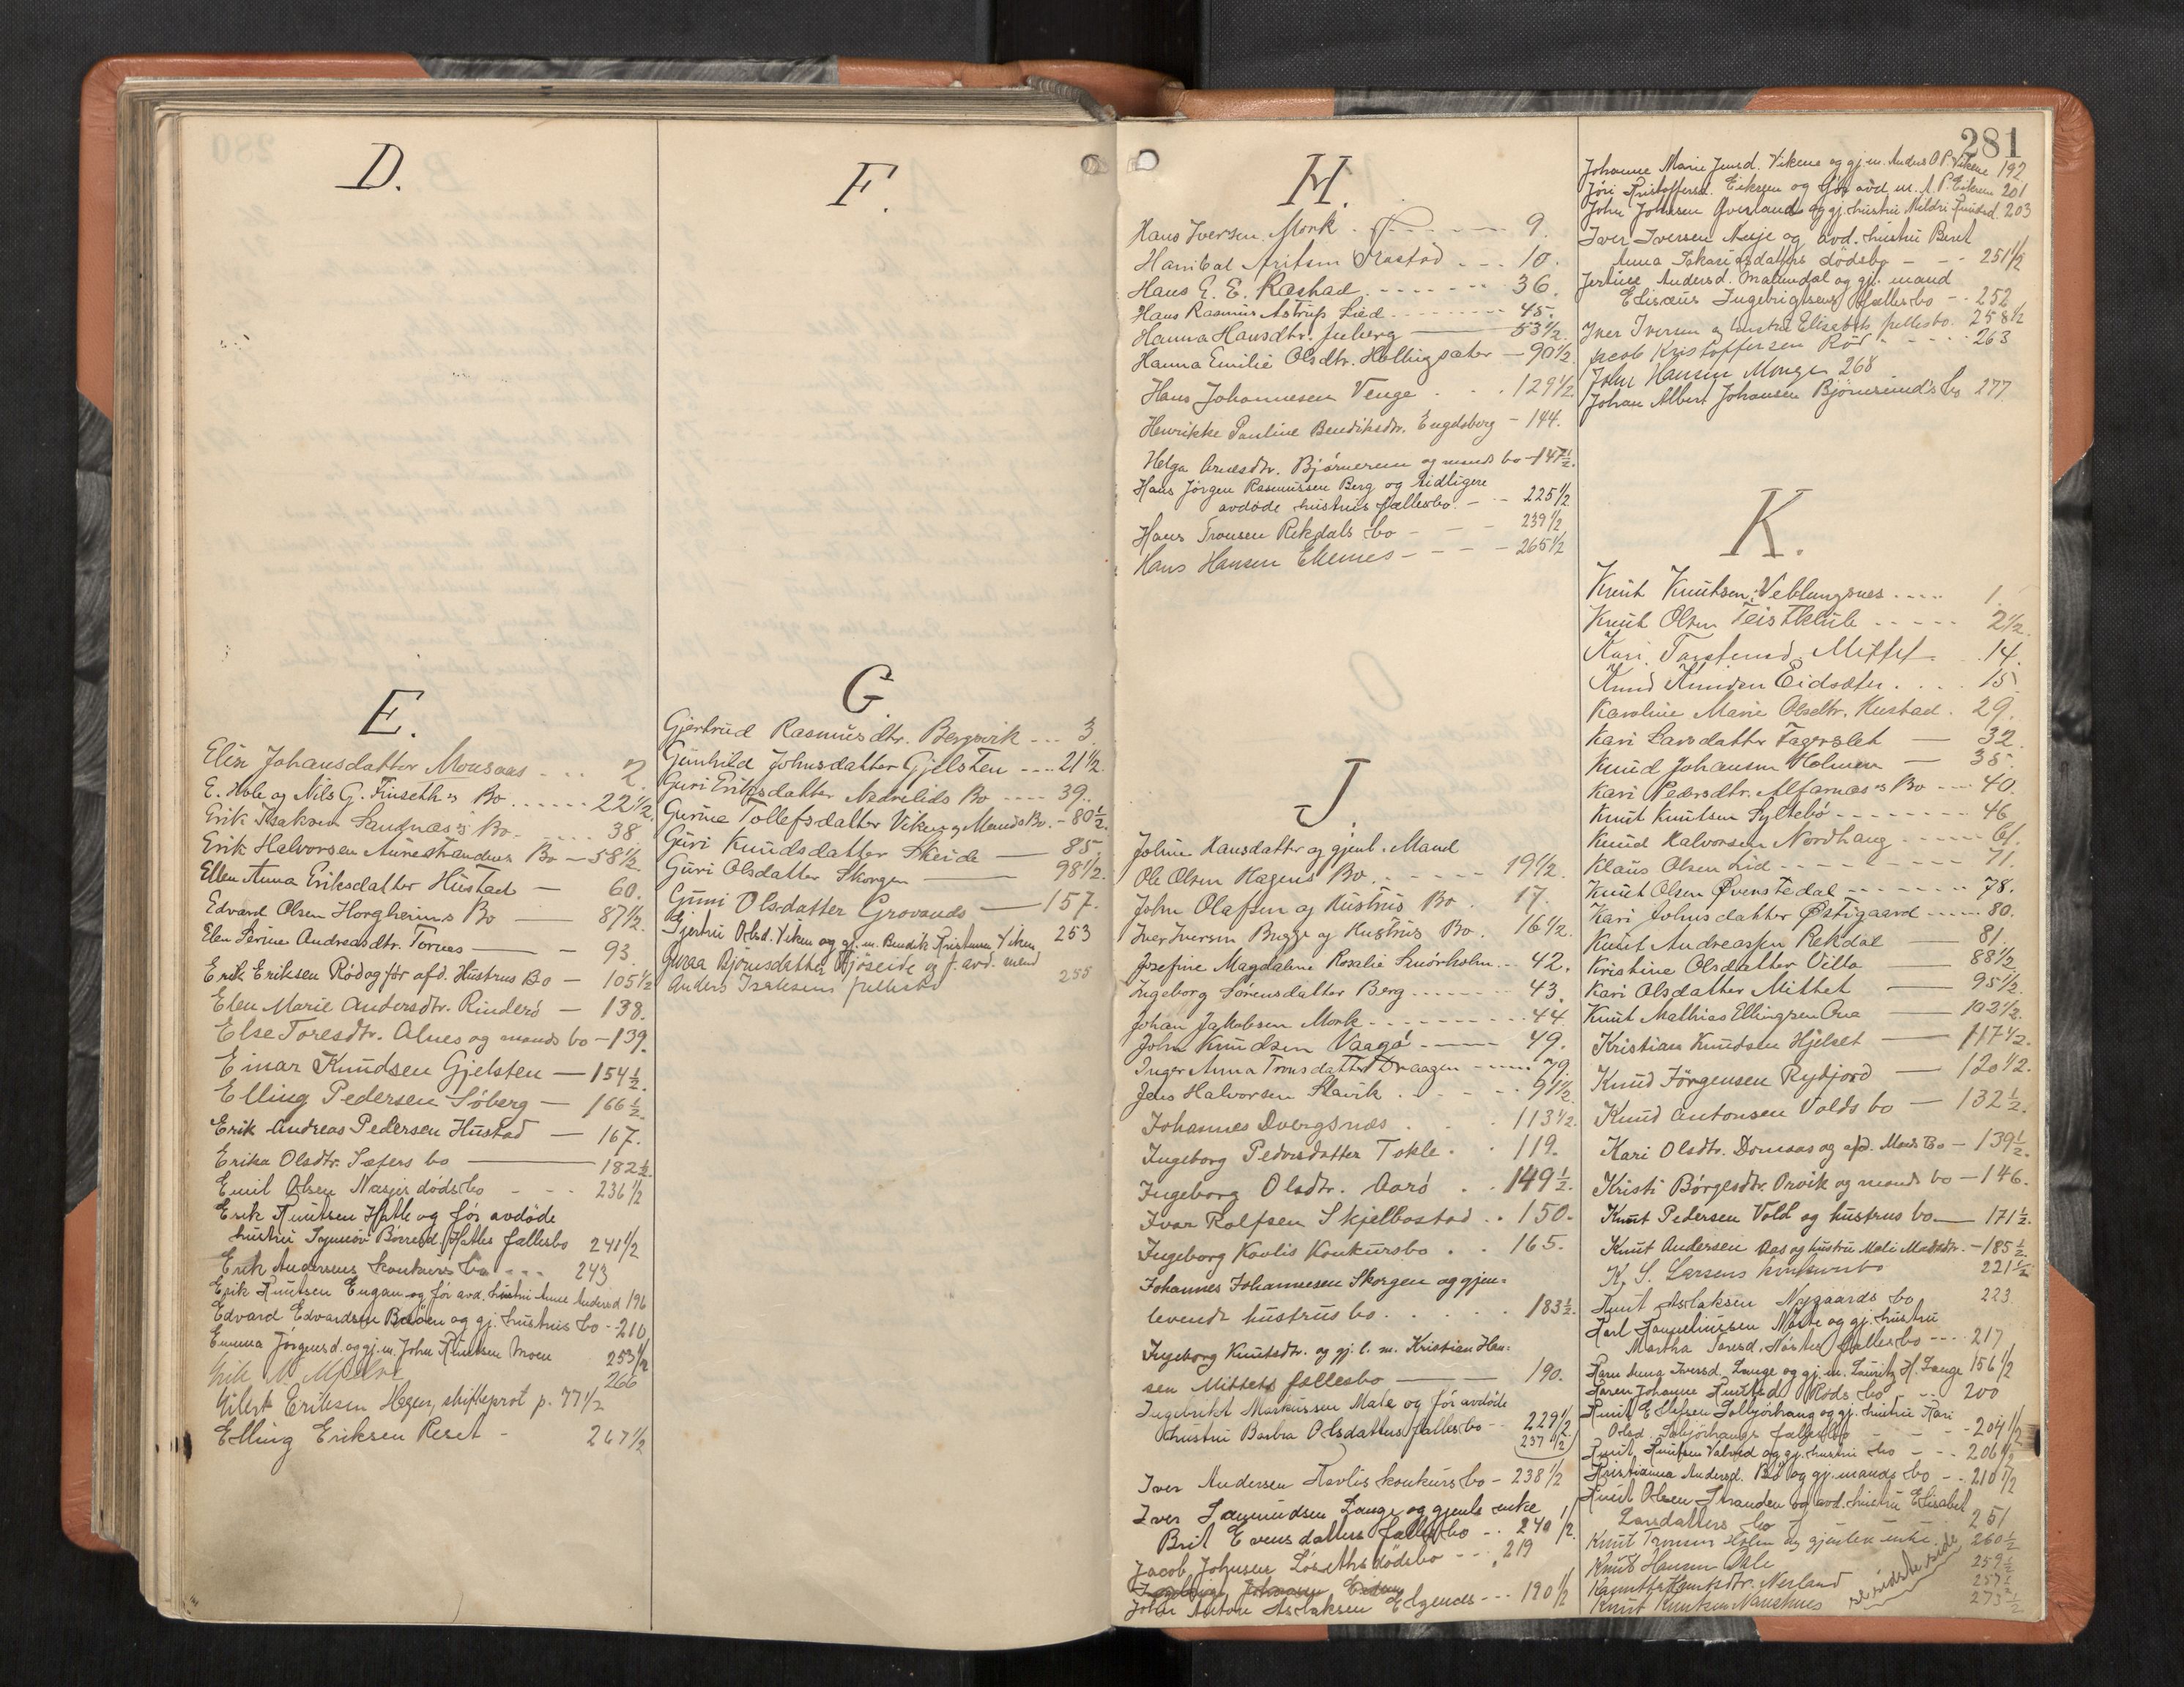 D.
E.
Elin Johansdatter Monsaas - . . . 2.
E. Hole og Nils G. Finseth's Bo . . . . . . 22 1/2.
Erik Isaksen Sandnæs's Bo - . . . . 38
Erik Halvorsen Aurestrandens Bo — 58 1/2.
Ellen Anna Eriksdatter Hustad — 60.
Edvard Olsen Horgheims Bo — 87 1/2.
Elen Serine Andreasdtr. Tornes — 93.
Erik Eriksen Rød og før afd. Hustrus Bo — 105 1/2
Elen Marie Andersdtr. Rinderö — 138.
Else Toresdtr. Alnes og mands bo — 139.
Einar Knudsen Gjelsten — 154 1/2.
Elling Pedersen Söberg — 166 1/2.
Erik Andreas Pedersen Hustad — 167.
Erika Olsdtr. Sæters bo — 182 1/2
Emil Olsen Næsjes dödsbo - - - 236 1/2
Erik Knutsen Hatle og för avdöde
hustru Børresd. Hatles fællesbo 241 1/2
Erik Andersens konkurs bo - - - 243
Erik Knutsen Engan og för avd. hustru Anne Andersd 196
Edvard Edvardsen Bolöen og gj. hustrus bo - - 210
Emma Jörgensd. og gj. m. John Knutsen Moen 253 1/2
Erik 266
Eilert Eriksen Hegen, skifteprot p. 77 1/2
Elling Eriksen Reset - 267 1/2
F.
G.
Gjertrud Rasmusdtr. Bergsvik - - - 3.
Gunhild Johnsdatter Gjelsten - - - - 21 1/2.
Guri Eriksdatter Nedrelids Bo - - - - 39..
Gurine Tollefsdatter Viken og Mands Bo. - 80 1/2.
Guri Knudsdatter Skeide — 85
Guri Olsdatter Skorgen — 98 1/2.
Guni Olsdatter Grovands — 157.
Gjertru Olsd. Viken og gj. m. Bendik Kristensen Viken 253
Guraa Björnsdatter Mjöseide og f. avd. mend
Anders Isaksens fellesbo 255
H.
Hans Iversen Mork - - - - - 9.
Hanibal Aritsen Orastad - - - 10.
Hans G. E. Rashad - - - - - - 36.
Hans Rasmus Astrup Lied - - - - - - - - 45.
Hanna Hansdtr. Juberg — 53 1/2.
Hanna Emilie Olsdtr. Hollingsæter — 90 1/2.
Hans Johannesen Venge . . . 129 1/2.
Henrikke Pauline Bendiksdtr. Engdsberg - 144.
Helga Arnesdtr. Björnerem og mands bo - 147 1/2.
Hans Jörgen Rasmussen Berg og tidligere
avdöde hustrus fællesbo. - - - 225 1/2
Hans Tronsen Rekdals bo - - - 239 1/2
Hans Hansen Elvenes - - - - 265 1/2
J.
Joline Hansdatter og gjenl. Mand
Ole Olsen Hagens Bo . - - - - - 19 1/2.
John Olafsen og Hustrus Bo . 17.
Iver Iversen Brugge og Hustrus Bo. 16 1/2.
Josefine Magdalene Rosalie Smörholm - - 42.
Ingeborg Sörensdatter Berg - - - - - - 43.
Johan Jakobsen Mork - - - - - - - - - 44.
John Knudsen Vaagö - - - - 49.
Inger Anna Tronsdatter Draagen - - - - - 79.
Jens Halvorsen Slavik . - - - - 91 1/2.
Johannes Dvergsnes . . . 113 1/2.
Ingeborg Pedersdatter Tokle . . 119.
Ingeborg Olsdtr. Aarö . . 149 1/2.
Ivar Rolfsen Skjelbostad . . 150.
Ingeborg Kavlis Konkursbo . . 165.
Johannes Johannesen Skorgen og gjen=
levende hustrus bo . . . . . 183 1/2.
Ingeborg Knutsdtr. og gj. l. m. Kristian Han=
sen Mittets fællesbo — 190.
Ingebrikt Markussen Male og för avdöde
hustru Barbra Olsdatters fællesbo - - 229 1/2
237 1/2
Iver Andersen Kavlis konkursbo - 238 1/2
Iver Samundsen Lange og gjenl. enke
Brit Evensdatters fællesbo - . 240 1/2
Jacob Johnsen Löseths dödsbo - - - 219
John Anton Aslaksen Elgenes - - - 190 1/2
281
Johanne Marie Jensd. Vikene og gj. m. Anders O. P. Vikene 192
Jöri Kristoffersd. Eikrem og för avd. m. A. P. Eikrem 201
John Johnsen Överland og gj. hustru Mildri Knutsd. 203
Iver Iversen Nesje og avd. hustru Beret
Anna Sakariasdatters dödsbo - - - 251 1/2
Jertine Andersd. Malmedal og gj. mand
Elisæus Ingebrigtsens fællesbo - . 252
Iver Iversen og hustru Elisabets fellesbo. 258 1/2
Jacob Kristoffersen Röd - - - - - 263
John Hansen Monge 268
Johan Albert Johansen Björnsund's bo 277
K.
Knut Knutsen Veblungsnes - - - - 1.
Knut Olsen Teistklub - - - - - 2 1/2.
Kari Torstensd. Mittet . . 14.
Knud Knudsen Eidsæter . . . . 15.
Karoline Marie Olsdtr. Hustad . 29.
Kari Larsdatter Fagerslet — 32.
Knud Johansen Holmen — 35.
Kari Pedersdtr. Alfarnæs's Bo - - - 40.
Knut Knutsen Syltebö - - - - - - - - 46
Knud Halvorsen Nordhaug - - - - - 61.
Klaus Olsen Lid - - - - - - - - - 71.
Knut Olsen Øverstedal - - - - - - - 78.
Kari Johnsdatter Östigaard - - - - - 80.
Knut Andreassen Rekdal — 81.
Kristine Olsdatter Villa — 88 1/2.
Kari Olsdatter Mittet — 95 1/2.
Knut Mathias Ellingsen Aua — 102 1/2.
Kristian Knudsen Hjelset — 117 1/2.
Knud Jörgensen Rydjord — 120 1/2.
Knud Antonsen Volds bo — 132 1/2.
Kari Olsdtr. Domaas og afd. Mands Bo — 139 1/2.
Kristi Börgesdtr. Orvik og mands bo — 146.
Knut Pedersen Vold og hustrus bo — 171 1/2.
Knut Andersen Aas og hustru Mali Madsdtr. — 185 1/2
K. S. Larsens konkursbo 221 1/2
Knut Aslaksen Nygaards bo 223
Karl Korneliussen Nöste og gj. hustru
Martha Toresd. Nöstes fællesbo - - - - 217
Karn Anna Iversd. Lange og gj. m. Lauritz H. Lange 156 1/2
Karen Johanne Knutsd. Röds bo - - - 200
Knut Ellefsen Solbjörhaug og gj. hustru Kari
Olsd. Solbjörhaugs fællesbo - - - - 204 1/2
Knut Knutsen Valved og gj. hustru bo - - - 206 1/2
Kristianna Andersd. Bö og gj. mands bo - - 210 1/2
Knut Olsen Stranden og avd. hustru Elisabet
Larsdatters bo 251
Knut Tronsen Holm og gjenlev enke 260 1/2
Knut Hansen Oule 259 1/2
Knutsdtr. Nesland 257 1/2
Knut Knutsen Naustnes 273 1/2
se sidste side